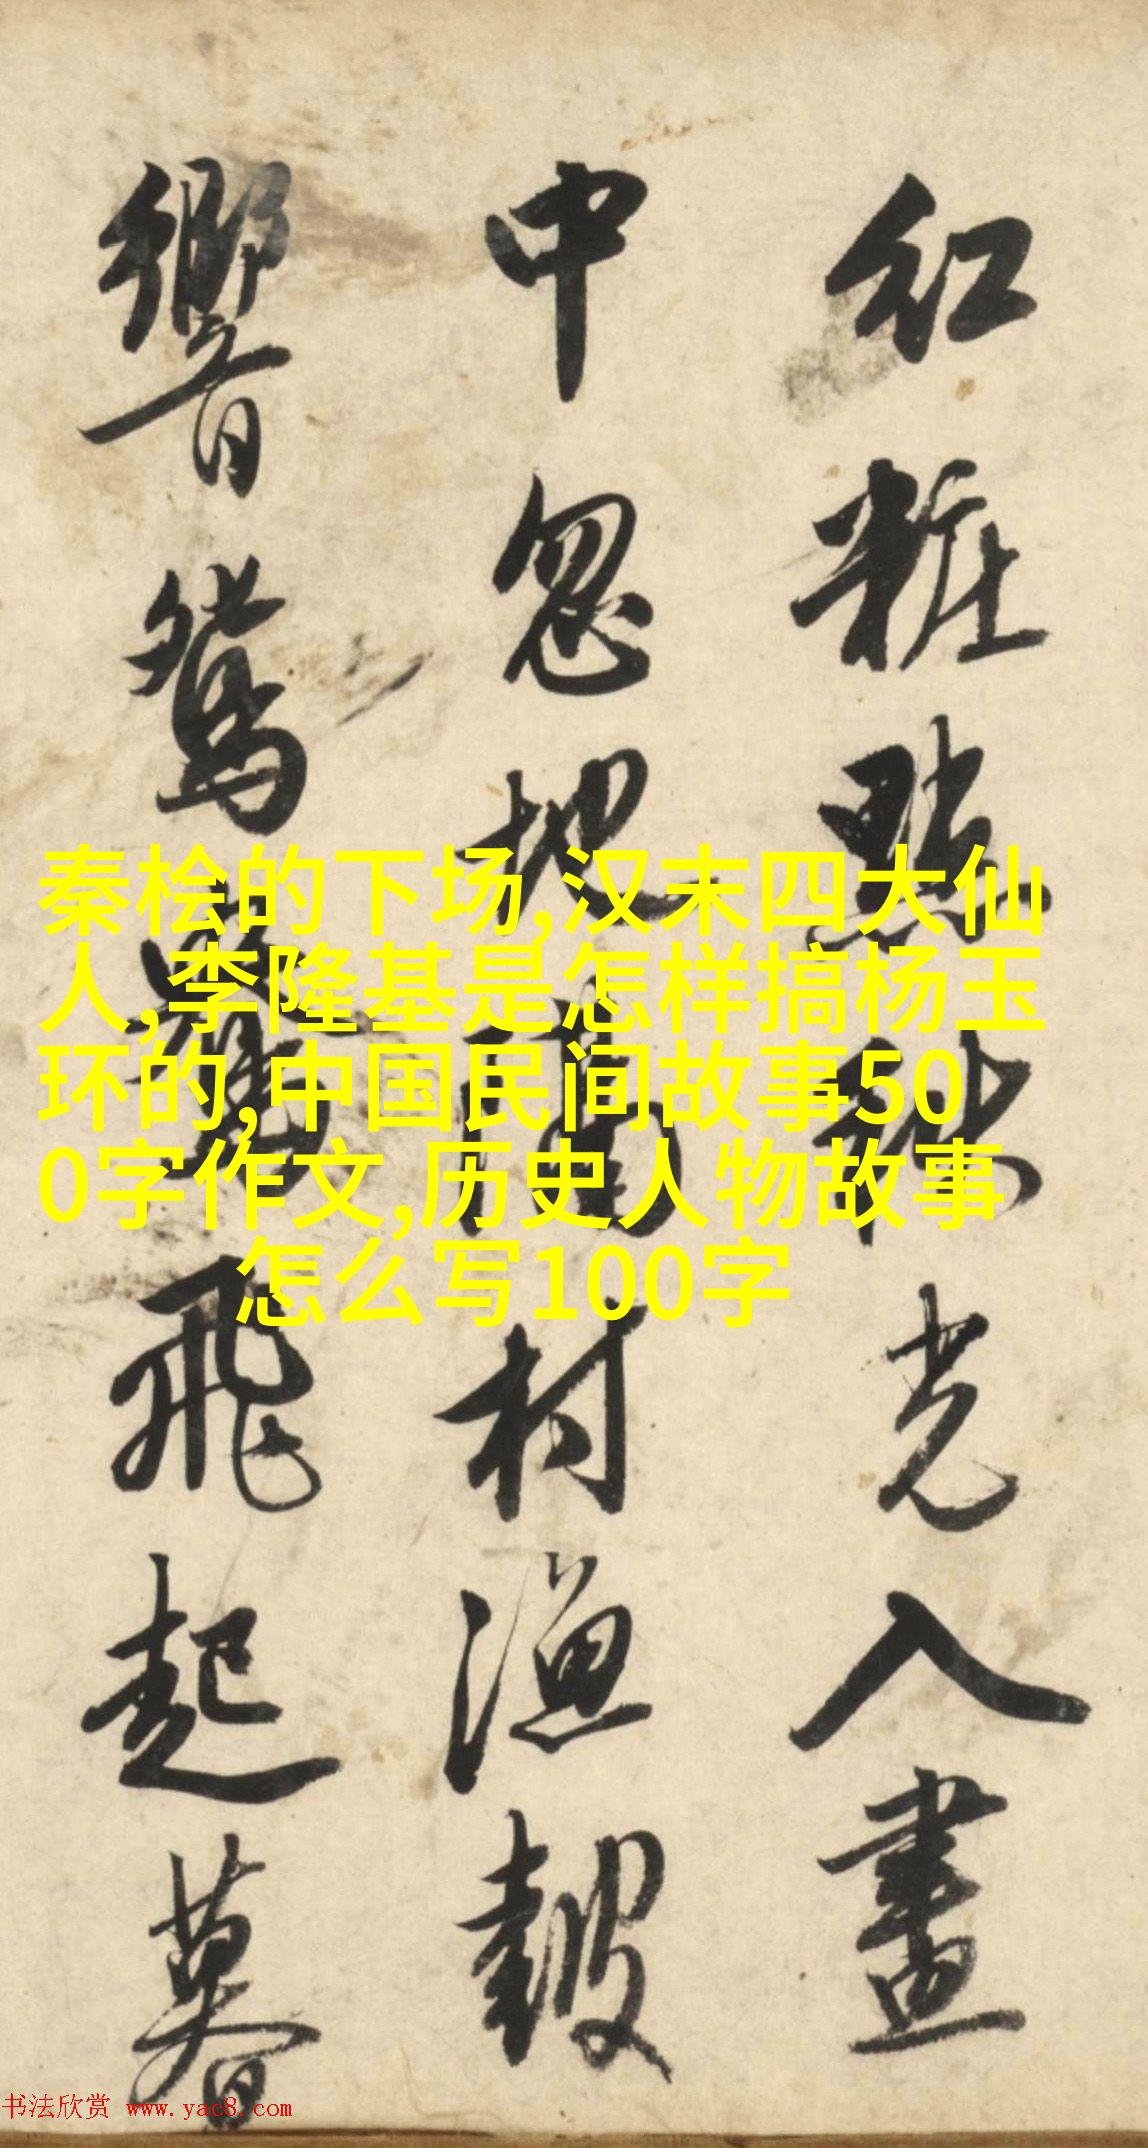 红粧點秋光入畫
中忽地前村漁皷
響鴛鴦飛起暮
秦桧的下场,汉末四大仙
人,李隆基是怎样搞杨玉
环的,中国民间故事50
0字作文,历史人物故事
怎么写100字
书法欣赏 www.yac8.com